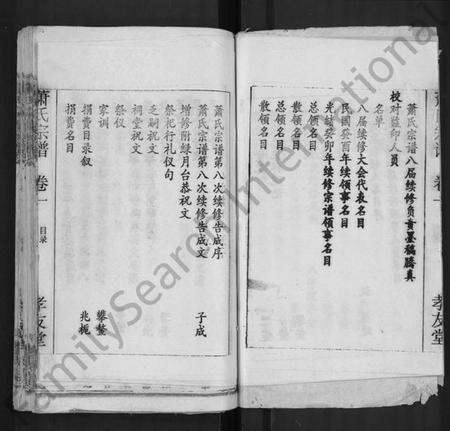 萧氏宗谱八届续修负责墨稿誊真
校对监印人员
名单
八届续修大会代表名目
民国癸酉年续领事名目
光绪癸卯年续修宗谱领事名目
总领名目
散领名目
总领名目
散领名目
孝友堂
萧氏宗谱第八次续修告成序 子成
萧氏宗谱第八次续修告成文
增修附绿月台恭祝文
祭祀行礼仪句
祠堂祝文
祭仪
家训 攀鳌
捐费目录叙 兆栀
捐费名目
萧氏宗谱 卷一 目录 孝友堂
FamilySearch International